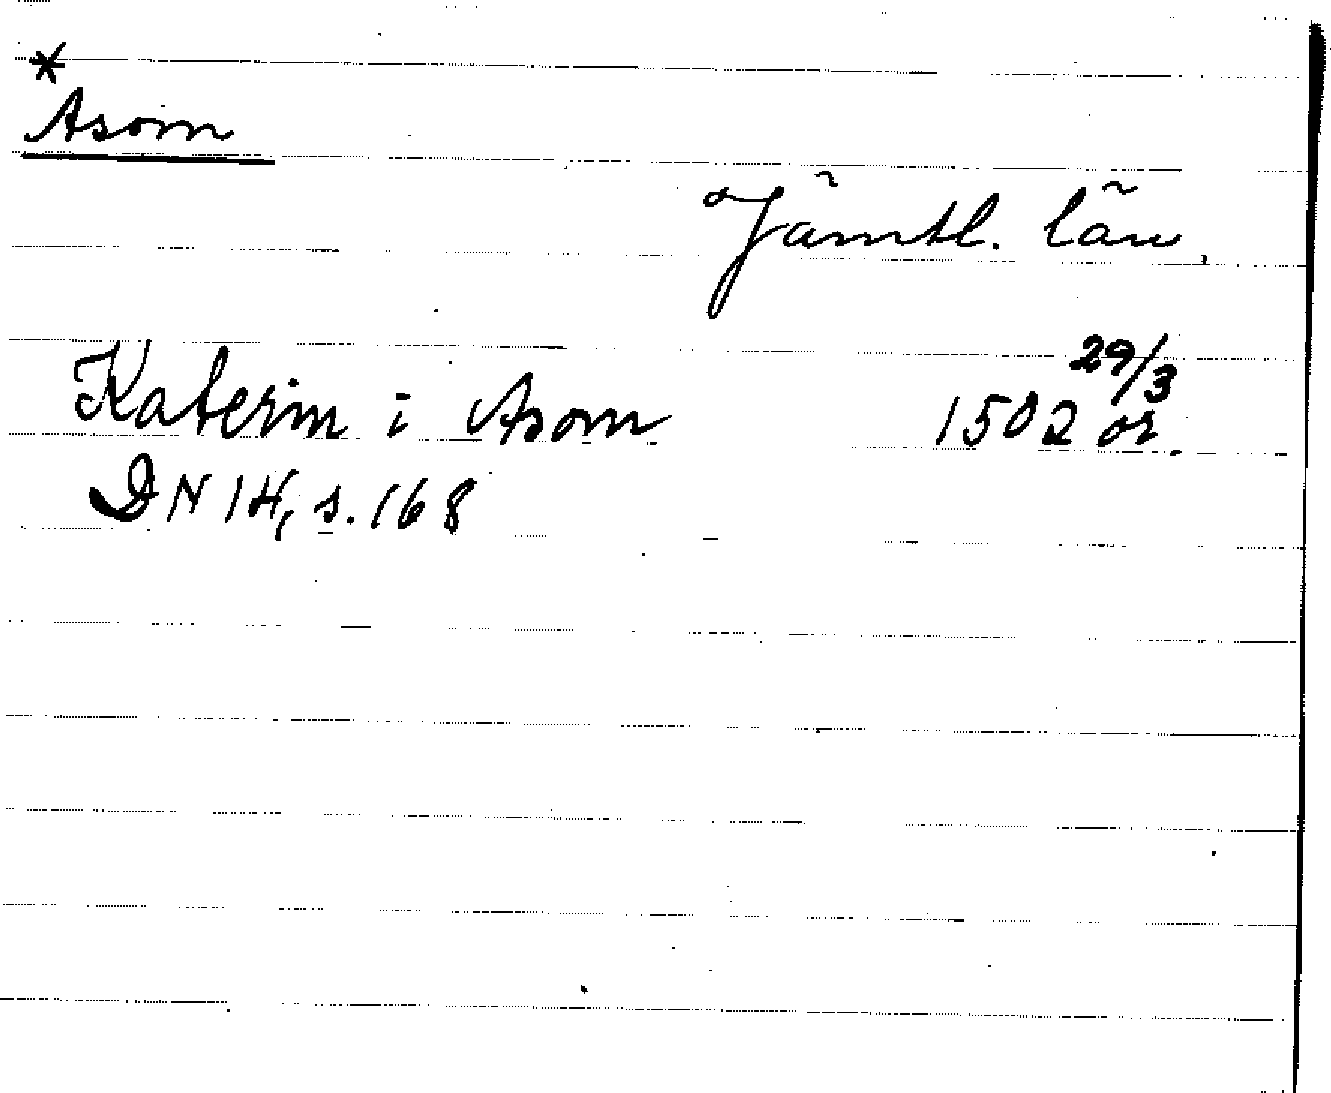 *
Asom
Jämtl. län
Katerin i Asom 1502 29/3 or.
DN 14, s. 168